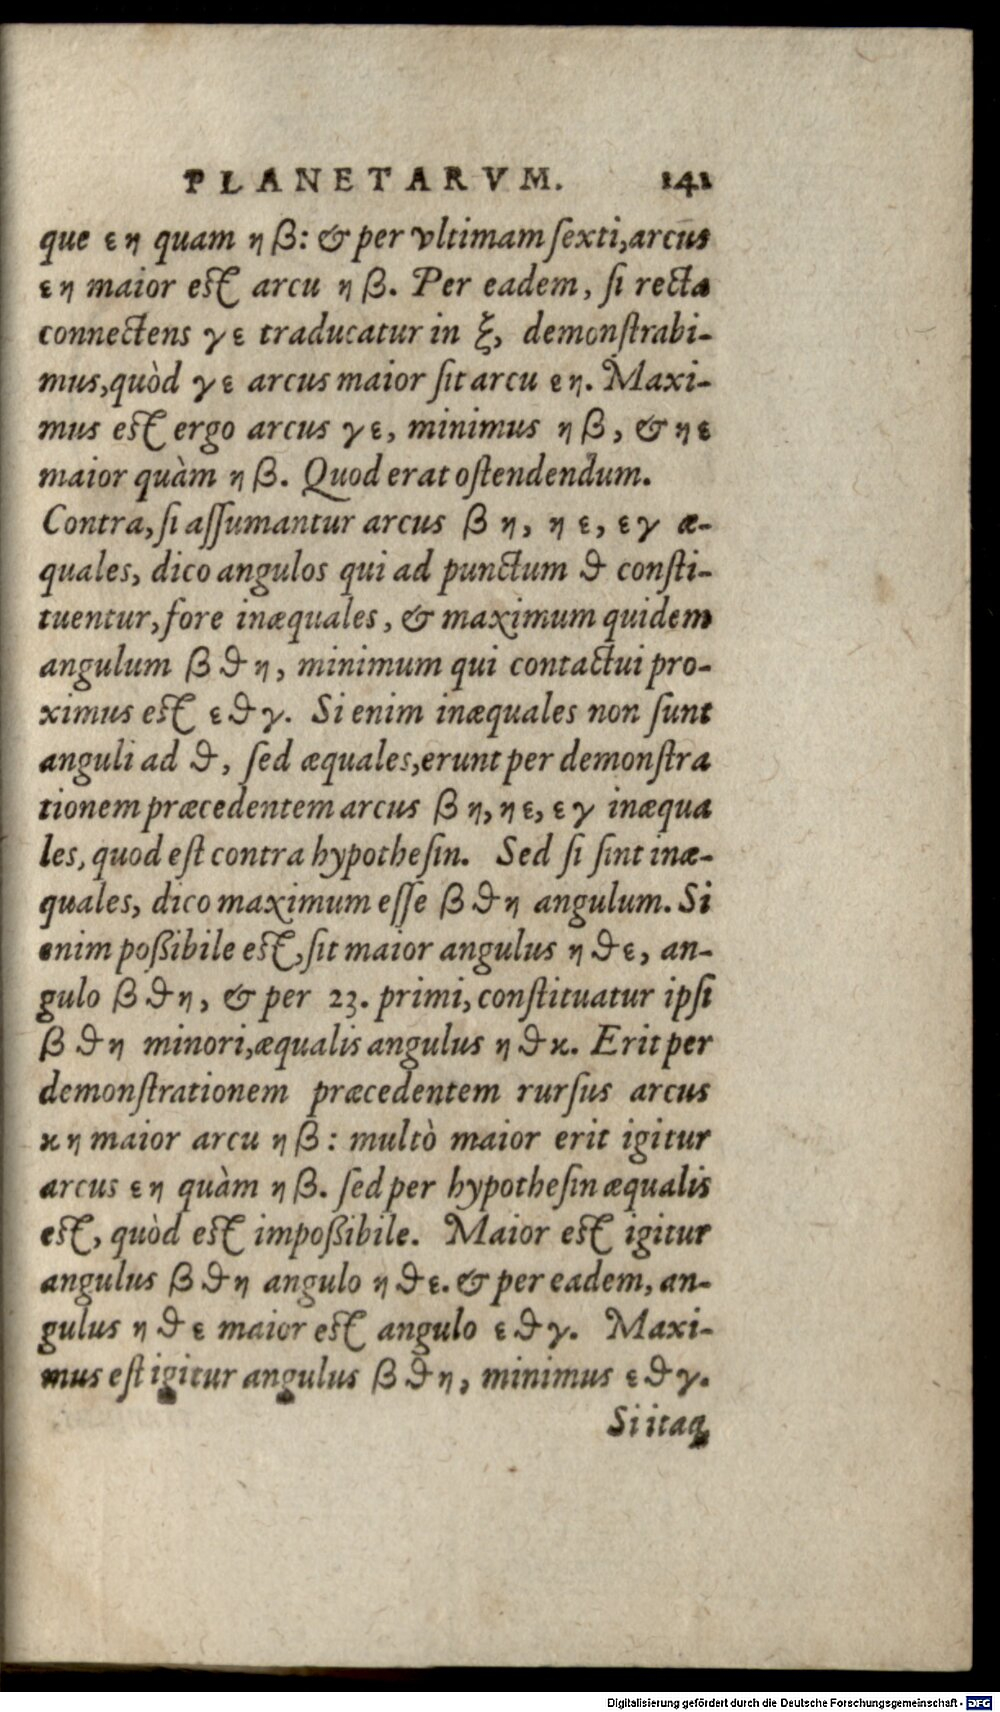 PLANETARVM. 141
que εη quam ηβ: & per vltimam ſexti, arcus
εη maior eſt arcu ηβ. Per eadem, ſi recta
connectens γε traducatur in ξ, demonſtrabi-
mus, quòd γε arcus maior ſit arcu εη. Maxi-
mus eſt ergo arcus γε, minimus ηβ, & ηε
maior quàm ηβ. Quod erat oſtendendum.
Contra, ſi aſſumantur arcus βη, ηε, εγ æ-
quales, dico angulos qui ad punctum δ conſti-
tuentur, fore inæquales, & maximum quidem
angulum βδη, minimum qui contactui pro-
ximus eſt εδγ. Si enim inæquales non ſunt
anguli ad δ, ſed æquales, erunt per demonſtra
tionem præcedentem arcus βη, ηε, εγ inæqua
les, quod eſt contra hypotheſin. Sed ſi ſint inæ-
quales, dico maximum eſſe βδη angulum. Si
enim poßibile eſt, ſit maior angulus ηδε, an-
gulo βδη, & per 23. primi, conſtituatur ipſi
βδη minori, æqualis angulus ηδκ. Erit per
demonſtrationem præcedentem rurſus arcus
κη maior arcu ηβ: multò maior erit igitur
arcus εη quàm ηβ. ſed per hypotheſin æqualis
eſt, quòd eſt impoßibile. Maior eſt igitur
angulus βδη angulo ηδε. & per eadem, an-
gulus ηδε maior eſt angulo εδγ. Maxi-
mus eſt igitur angulus βδη, minimus εδγ.
Si itaq;
Digitalisierung gefördert durch die Deutsche Forschungsgemeinschaft - DFG